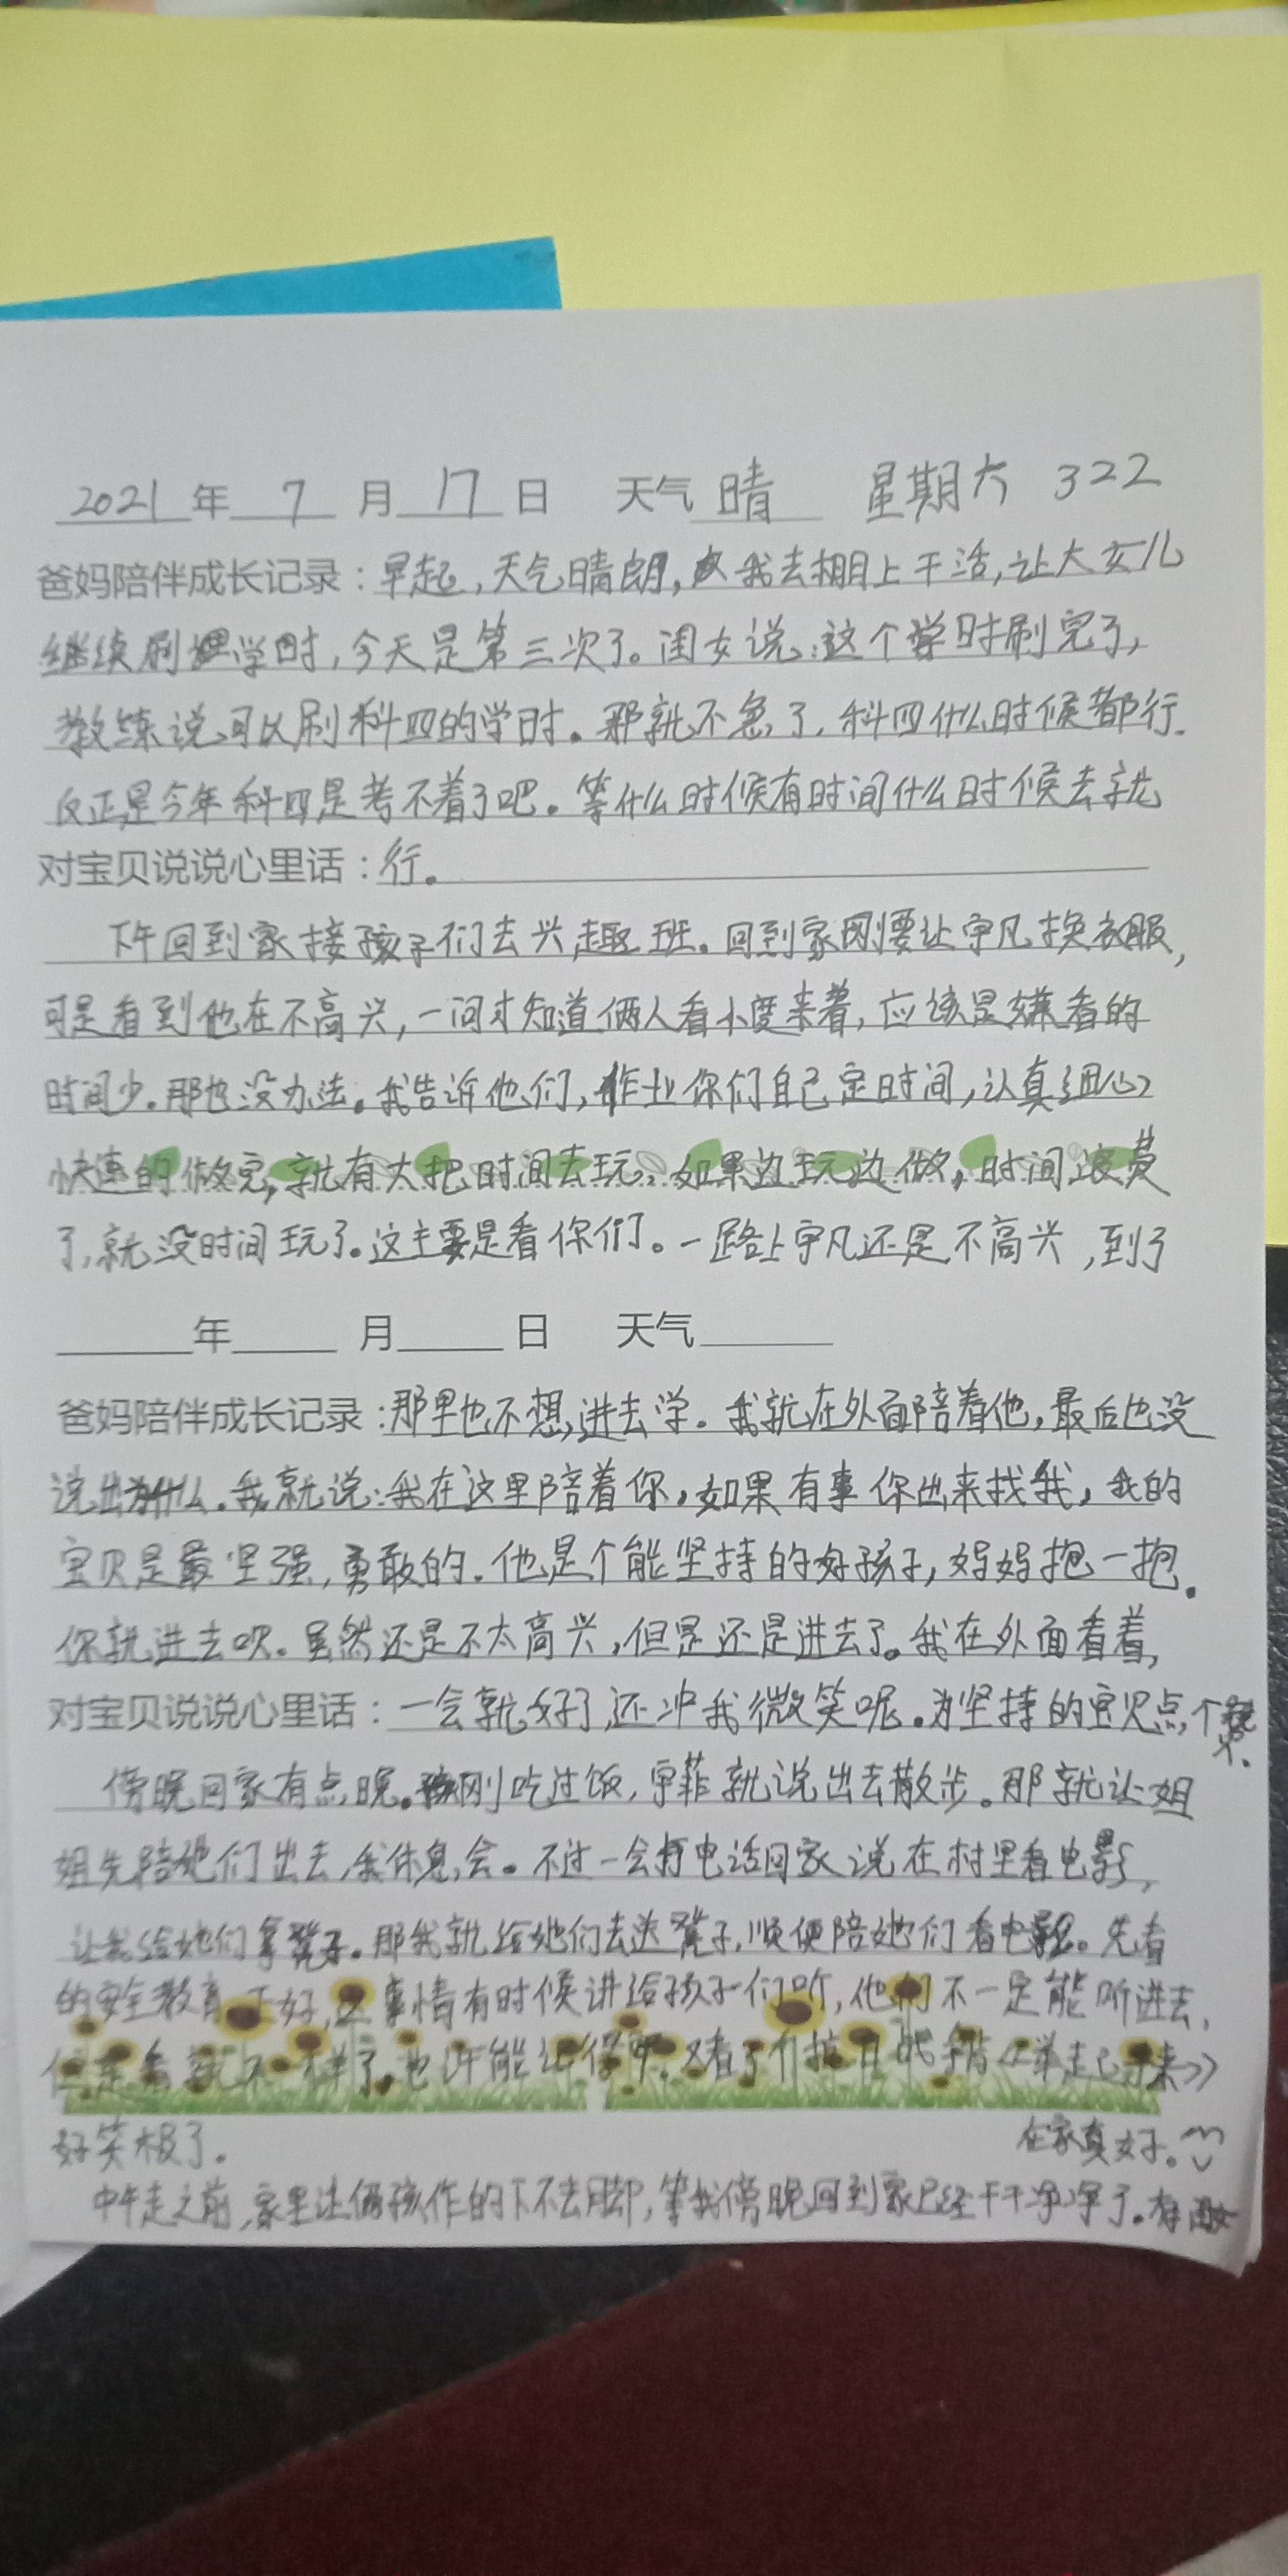 2021年 7 月 17 日 天气 晴 星期六 322
爸妈陪伴成长记录:早起,天气晴朗,我去棚上干活,让大女儿
继续刷学时,今天是第三次了。闺女说:这个学时刷完了,
教练说可以刷科四的学时。那就不急了,科四什么时候都行.
反正是今年科四是考不着了吧。等什么时候有时间什么时候去就
对宝贝说说心里话:行。
下午回到家接孩子们去兴趣班。回到家刚要让宇凡换衣服,
可是看到他在不高兴,一问才知道俩人看小度来着,应该是嫌看的
时间少.那也没办法。我告诉他们,作业你们自己定时间,认真细心
快速的做完,就有大把时间去玩,如果边玩边做,时间浪费
了,就没时间玩了。这主要是看你们。一路上宇凡还是不高兴,到了
年 月 日 天气
爸妈陪伴成长记录:那里也不想进去学.我就在外面陪着他,最后也没
说出为什么.我就说:我在这里陪着你,如果有事你出来找我,我的
宝贝是最坚强,勇敢的.他是个能坚持的好孩子,妈妈抱一抱.
你就进去吹.虽然还是不太高兴,但是还是进去了。我在外面看着,
对宝贝说说心里话:一会就好了,还冲我微笑呢.为坚持的宝贝点个赞.
傍晚回家有点晚.刚吃过饭,宇菲就说出去散步。那就让姐
姐先陪她们出去,我休息会。不过一会打电话回家说在村里看电影,
让我给她们拿凳子.那我就给她们去送凳子,顺便陪她们看电影。先看
的安全教育正好,这事情有时候讲给孩子们听,他们不一定能听进去,
但是看就不一样了,也许能记得牢.又看了个抗日战争片《举起手来》
好笑极了.
中午走之前,家里让俩孩作的下不去脚,等我傍晚回到家已经干干净净了.有闺女
在家真好.